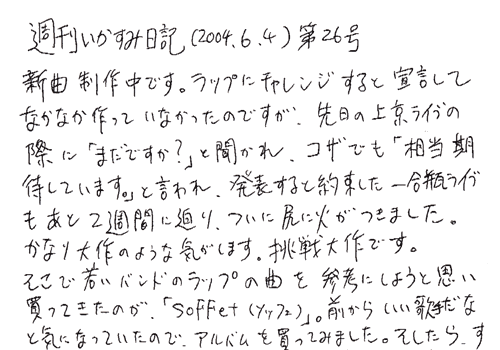 週刊いかすみ日記(2004.6.4)第26号
新曲制作中です。ラップにチャレンジすると宣言して
なかなか作っていなかったのですが、先日の上京ライブの
際に「まだですか?」と聞かれ、コザでも「相当期
待しています。」と言われ、発表すると約束した一合瓶ライブ
もあと2週間に迫り、ついに尻に火がつきました。
かなり大作のような気がします。挑戦大作です。
そこで若いバンドのラップの曲を参考にしようと思い
買ってきたのが、「SOFFet(ソッフェ)」。前からいい歌手だな
と気になっていたので、アルバムを買ってみました。そしたら、す